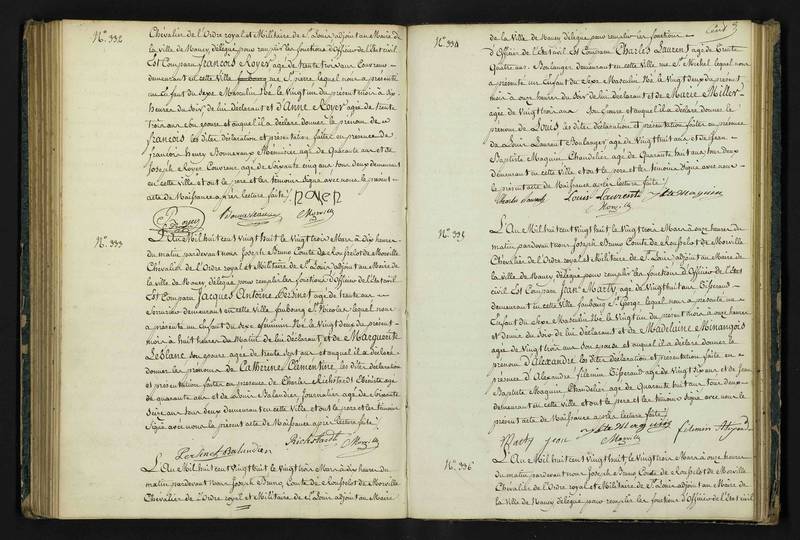 N.º 332
Chevalier de l'Ordre royal et Militaire de S.t Louis adjoint au Maire de
la ville de Nancy délégué pour remplir les fonctions d'Officier de l'état civil
Est Comparu François Royer agé de trente trois ans Couvreur
demeurant en cette Ville rue St. pierre lequel nous a présenté
un Enfant du sexe Masculin Né le vingt un du présent mois à six
heures du soir de lui déclarant et d'Anne Royer agée de trente
trois ans son épouse et auquel il a déclaré donner le prénom de
François les dites déclaration et présentation faites en présence de
françois henry Bonnevaux agé de Quarante ans et de
Joseph Royer Couvreur agé de soixante cinq ans tous deux demeurant
en cette ville et ont le pere et les témoins signé avec nous le présent
acte de Naissance après lecture faite
Royer
Morville
N.º 333
L'An Mil huit cent vingt huit le vingt trois Mars à dix heures
du matin pardevant nous Joseph Bruno Comte de Rousselot de Morville
Chevalier de l'Ordre royal et Militaire de S.t Louis adjoint au Maire de
la ville de Nancy délégué pour remplir les fonctions d'Officier de l'état civil
Est Comparu Jacques Antoine agé de trente ans
Serrurier demeurant en cette ville faubourg St. Nicolas lequel nous
a présenté un Enfant du sexe féminin Né le vingt deux du présent
mois à huit heures du Matin de lui déclarant et de Marguerite
Leblanc son épouse agée de trente sept ans et auquel il a déclaré
donner les prénoms de Catherine Clémentine, les dites déclaration
et présentation faites en présence de Charles Rickstaedt Ebéniste agé
de quarante ans et de Balandier, Journalier agé de soixante
seize ans tous deux demeurant en cette ville et ont le pere et les témoins
signé avec nous le présent acte de Naissance après lecture faite
Balandier
Rickstaedt
Morville
L'An Mil huit cent vingt huit le vingt trois Mars à dix heures du
matin pardevant nous Joseph Bruno, Comte de Rousselot de Morville
Chevalier de l'Ordre royal et Militaire de S.t Louis adjoint au Maire
N.º 334
de la ville de Nancy délégué pour remplir les fonctions
d'Officier de l'état civil Est Comparu Charles Laurent agé de trente
quatre ans Boulanger demeurant en cette ville rue St. Michel lequel nous
a présenté un Enfant du sexe Masculin Né le vingt deux du présent
mois à onze heures du soir de lui déclarant et de Marie Miller
agée de vingt trois ans son épouse et auquel il a déclaré donner le
prénom de Louis les dites déclaration et présentation faites en présence
de Louis Laurent Boulanger agé de vingt huit ans et de Jean
Baptiste Maquin Chandelier agé de Quarante huit ans tous deux
demeurant en cette ville et ont le pere et les témoins signé avec nous
le présent acte de Naissance après lecture faite
Charles Laurent
Louis Laurent
Morville
N.º 335
L'An Mil huit cent vingt huit le vingt trois Mars à onze heures du
matin pardevant nous Joseph Bruno Comte de Rousselot de Morville
Chevalier de l'Ordre royal et Militaire de S.t Louis adjoint au Maire de
la ville de Nancy délégué pour remplir les fonctions d'Officier de l'état
civil Est Comparu Jean Marty agé de vingt huit ans Tisserand
demeurant en cette Ville faubourg St. George lequel nous a présenté un
Enfant du sexe Masculin Né le vingt un du présent mois à onze heures
et demie du soir de lui déclarant et de Madelaine
agée de vingt trois ans son épouse et auquel il a déclaré donner le
prénom d'Alexandre les dites déclaration et présentation faites en
présence d'Alexandre filemin Tisserand agé de vingt six ans et de Jean
Baptiste Maquin Chandelier agé de Quarante huit ans tous deux
demeurant en cette ville et ont le pere et les témoins signé avec nous le
présent acte de Naissance après lecture faite
Marty jean
Morville
filemin
N.º 336
L'An Mil huit cent vingt huit le vingt trois Mars à onze heures
du matin pardevant nous Joseph Bruno Comte de Rousselot de Morville
Chevalier de l'Ordre royal et Militaire de S.t Louis adjoint au Maire de
la ville de Nancy délégué pour remplir les fonctions d'Officier de l'état civil